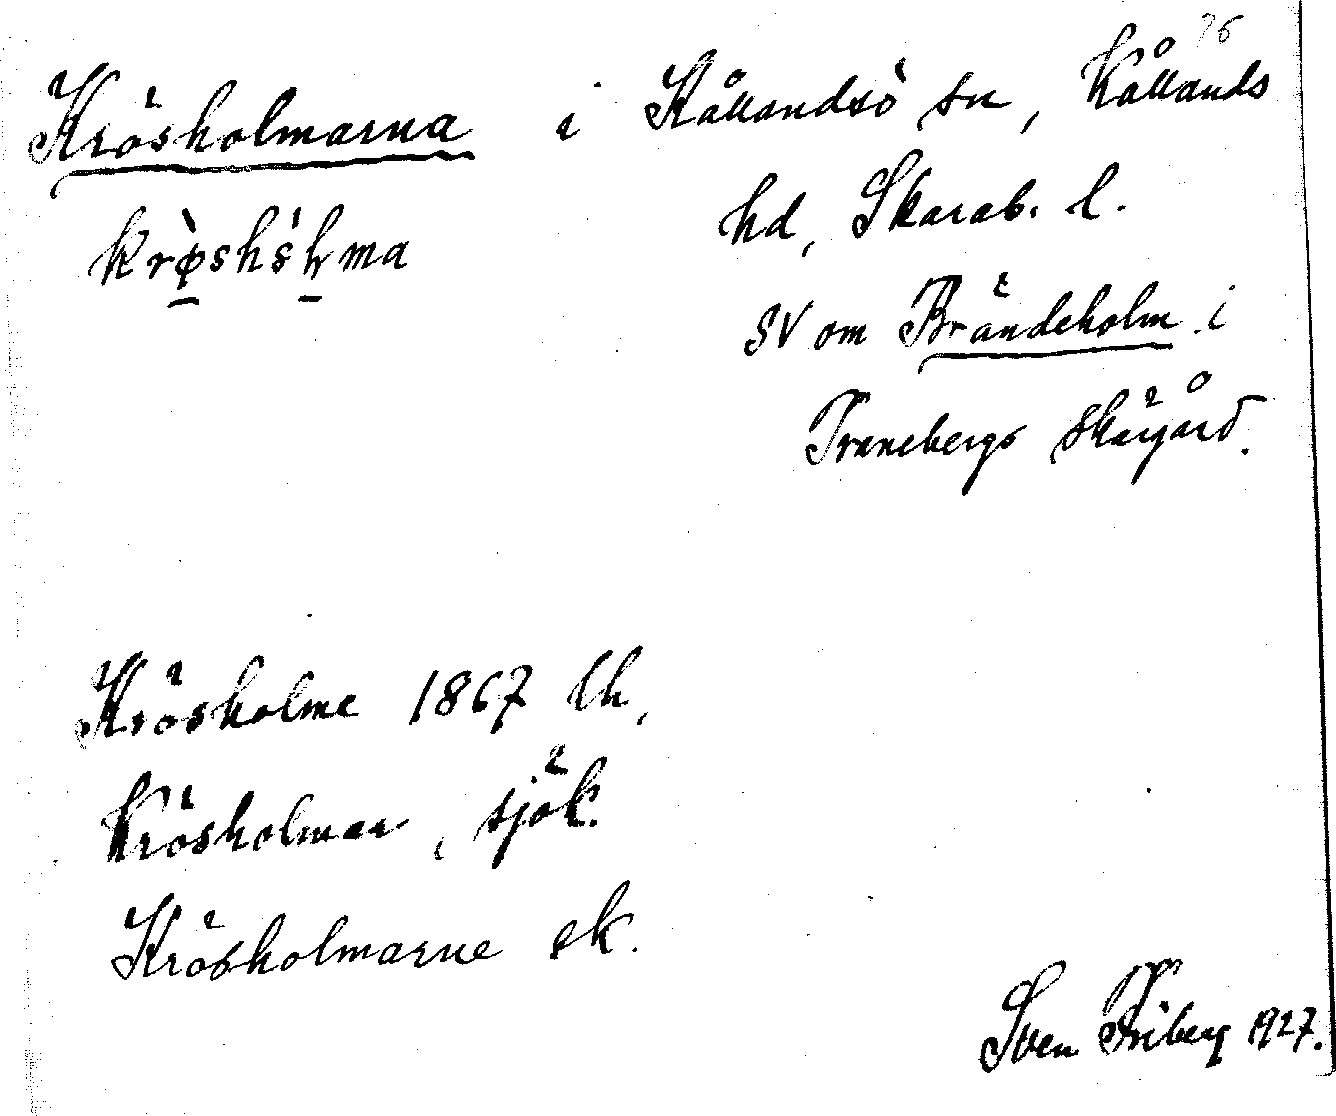 76
Krösholmarna i Kållandsö sn, Kållands
hd, Skarab. l.
SV om Brändeholm i
Tranebergs skärgård.
Krösholme 1867 lk,
Krösholmar, sjök.
Krösholmarne ek.
Sven Friberg 1927.